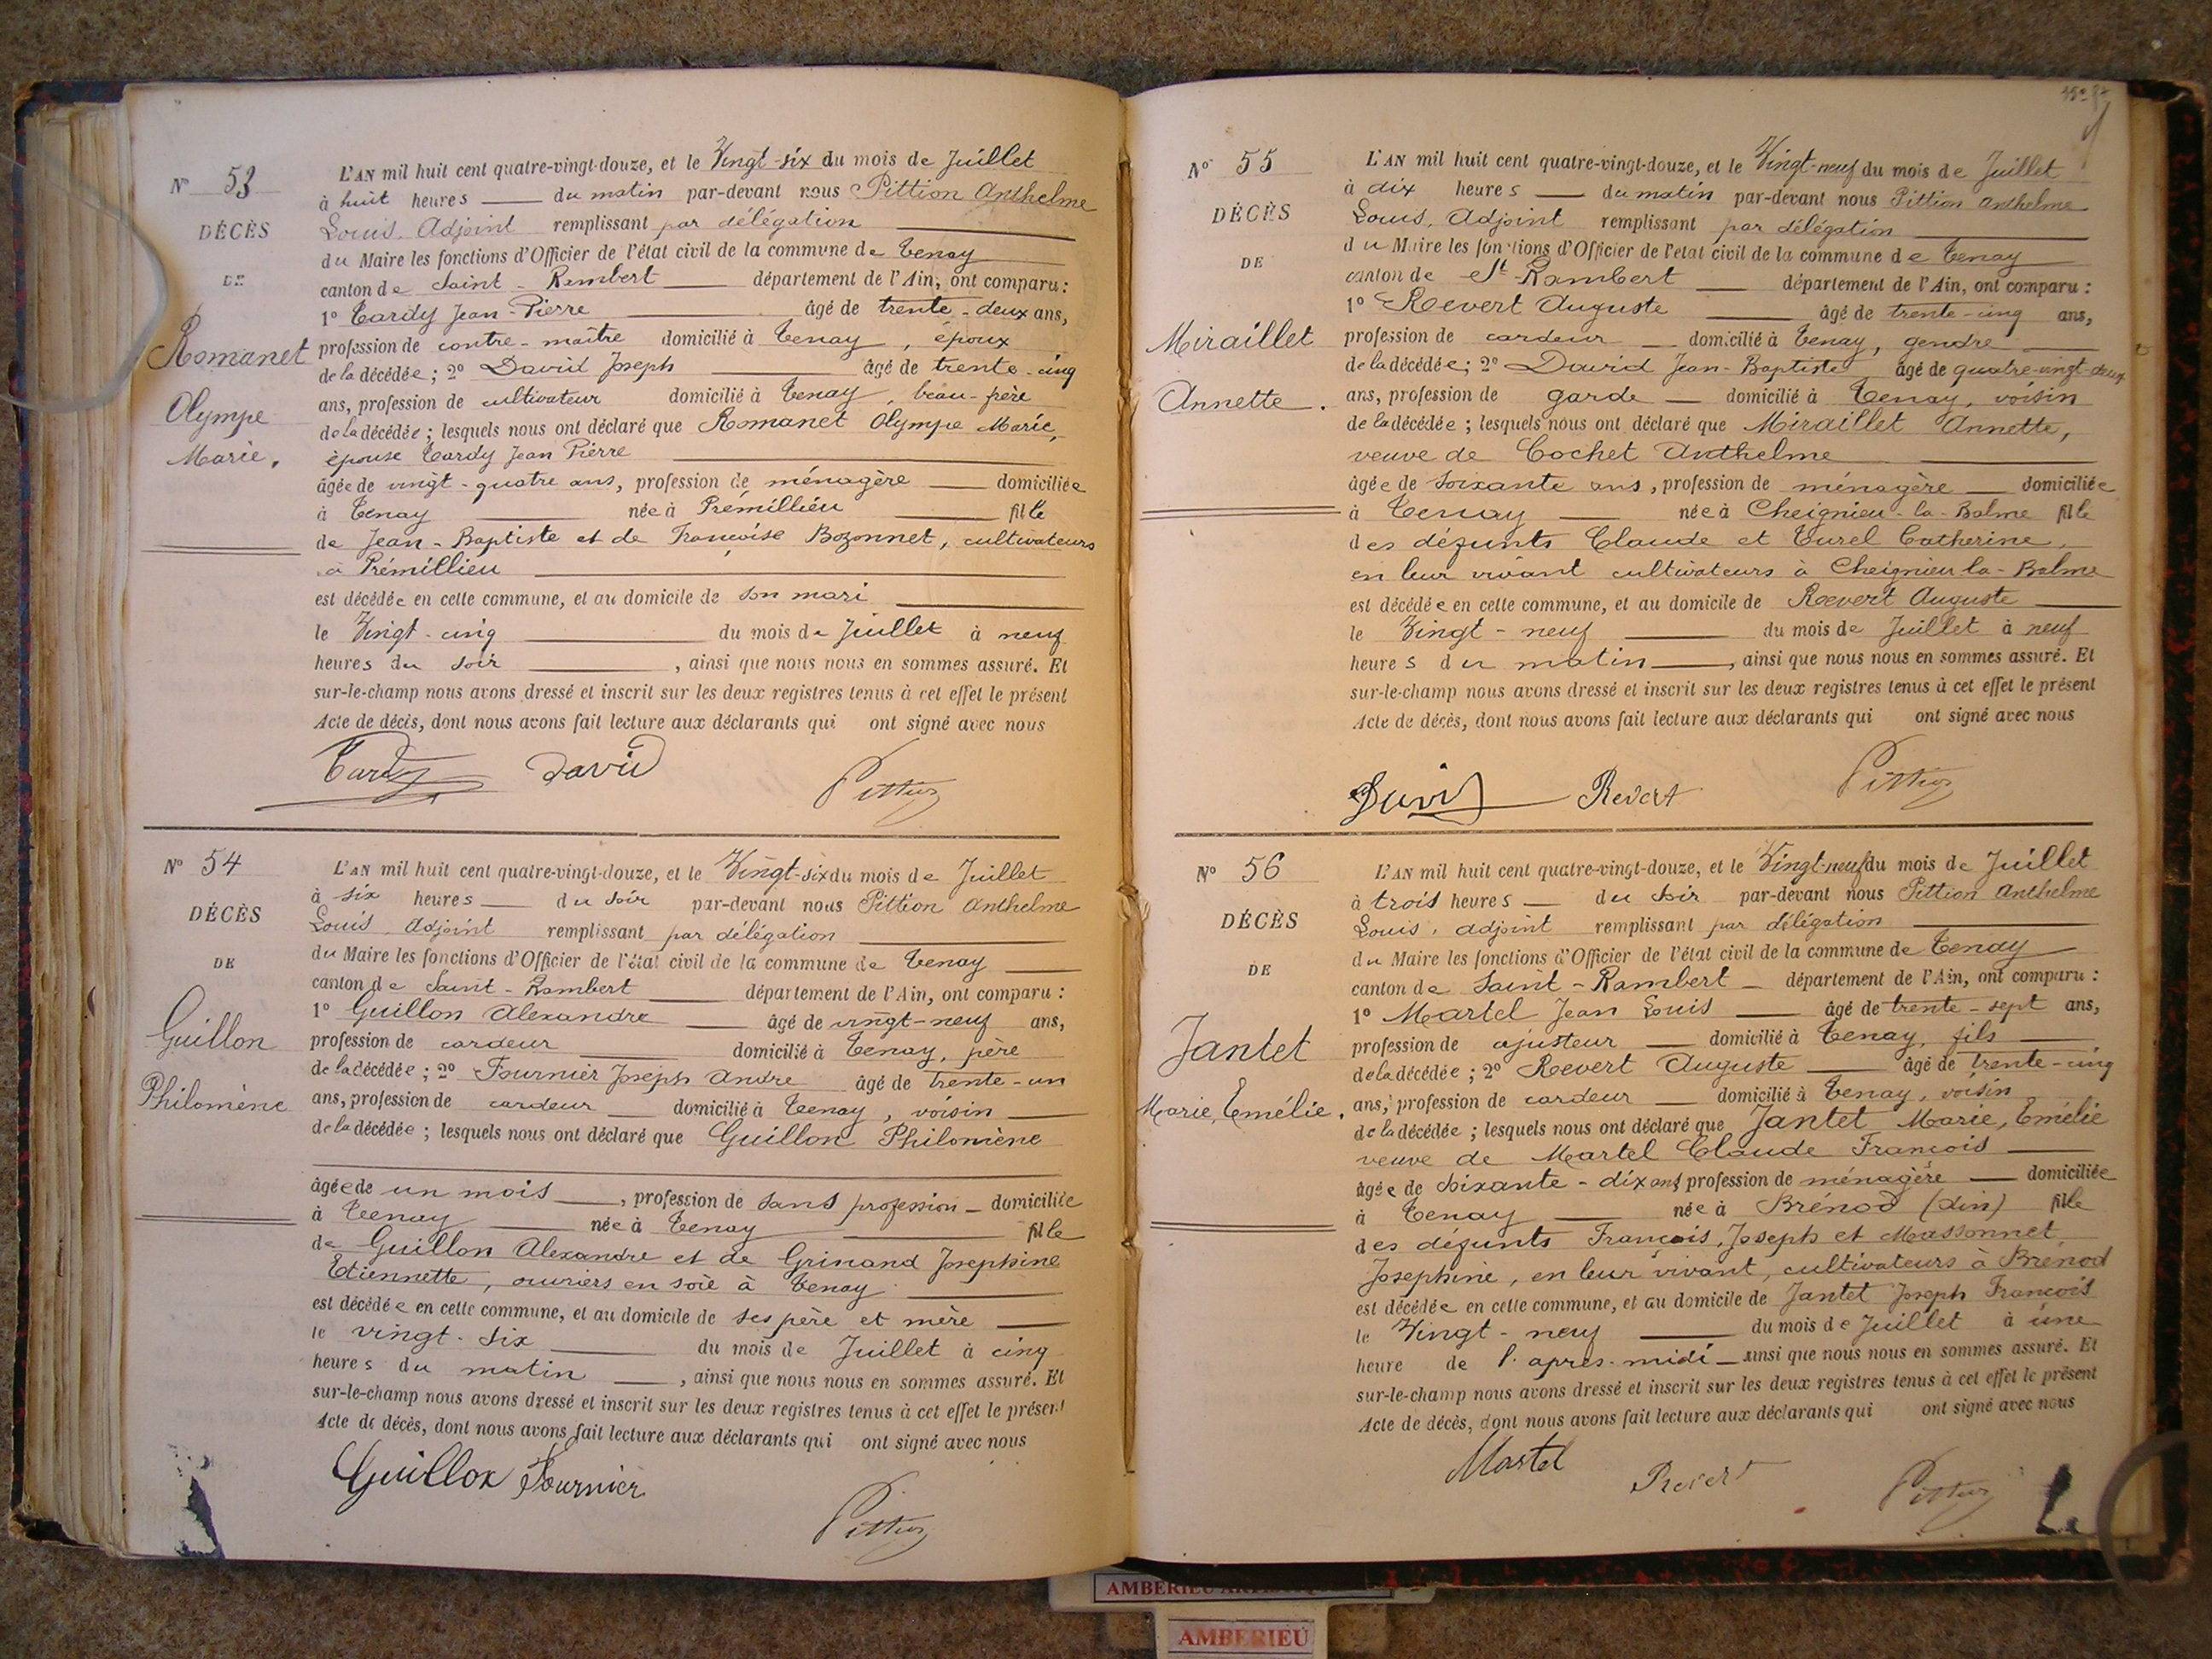 Nº 53
DÉCÈS
DE
Romanet
Olympe
Marie.
L'AN mil huit cent quatre-vingt-douze, et le Vingt-six du mois de Juillet
à huit heures du matin par-devant nous Pittion Anthelme
Louis, Adjoint remplissant par délégation
du Maire les fonctions d'Officier de l'état civil de la commune de Tenay
canton de Saint-Rambert département de l'Ain, ont comparu :
1º Tardy Jean-Pierre âgé de trente-deux ans,
profession de contre-maître domicilié à Tenay, époux
de la décédée ; 2º David Joseph âgé de trente-cinq
ans, profession de cultivateur domicilié à Tenay, beau-frère
de la décédée ; lesquels nous ont déclaré que Romanet Olympe Marie,
épouse Tardy Jean Pierre
âgée de vingt-quatre ans, profession de ménagère domiciliée
à Tenay née à Prémillieu fille
de Jean-Baptiste et de Françoise Bozonnet, cultivateurs
à Prémillieu
est décédée en cette commune, et au domicile de son mari
le Vingt-cinq du mois de Juillet à neuf
heures du soir, ainsi que nous nous en sommes assuré. Et
sur-le-champ nous avons dressé et inscrit sur les deux registres tenus à cet effet le présent
Acte de décès, dont nous avons fait lecture aux déclarants qui ont signé avec nous
Tardy David Pittion
Nº 54
DÉCÈS
DE
Guillon
Philomène
L'AN mil huit cent quatre-vingt-douze, et le Vingt-six du mois de Juillet
à six heures du soir par-devant nous Pittion Anthelme
Louis, Adjoint remplissant par délégation
du Maire les fonctions d'Officier de l'état civil de la commune de Tenay
canton de Saint-Rambert département de l'Ain, ont comparu :
1º Guillon Alexandre âgé de vingt-neuf ans,
profession de cardeur domicilié à Tenay, père
de la décédée ; 2º Fournier Joseph André âgé de trente-un
ans, profession de cardeur domicilié à Tenay, voisin
de la décédée ; lesquels nous ont déclaré que Guillon Philomène
âgée de un mois, profession de sans profession domiciliée
à Tenay née à Tenay fille
de Guillon Alexandre et de Grinand Josephine
Etiennette, ouvriers en soie à Tenay
est décédée en cette commune, et au domicile de ses père et mère
le vingt-six du mois de Juillet à cinq
heures du matin, ainsi que nous nous en sommes assuré. Et
sur-le-champ nous avons dressé et inscrit sur les deux registres tenus à cet effet le présent
Acte de décès, dont nous avons fait lecture aux déclarants qui ont signé avec nous
Guillon Fournier
Pittion
Nº 55
DÉCÈS
DE
Miraillet
Annette.
L'AN mil huit cent quatre-vingt-douze, et le Vingt-neuf du mois de Juillet
à dix heures du matin par-devant nous Pittion Anthelme
Louis, Adjoint remplissant par délégation
du Maire les fonctions d'Officier de l'état civil de la commune de Tenay
canton de St-Rambert département de l'Ain, ont comparu :
1º Revert Auguste âgé de trente-cinq ans,
profession de cardeur domicilié à Tenay, gendre
de la décédée ; 2º David Jean-Baptiste âgé de quatre-vingt-deux
ans, profession de garde domicilié à Tenay, voisin
de la décédée ; lesquels nous ont déclaré que Miraillet Annette,
veuve de Cochet Anthelme
âgée de soixante ans, profession de ménagère domiciliée
à Tenay née à Cheignieu-la-Balme fille
des défunts Claude et Turel Catherine,
en leur vivant cultivateurs à Cheignieu la-Balme
est décédée en cette commune, et au domicile de Revert Auguste
le Vingt-neuf du mois de Juillet à neuf
heures du matin, ainsi que nous nous en sommes assuré. Et
sur-le-champ nous avons dressé et inscrit sur les deux registres tenus à cet effet le présent
Acte de décès, dont nous avons fait lecture aux déclarants qui ont signé avec nous
David Revert Pittion
Nº 56
DÉCÈS
DE
Jantet
Marie, Emélie.
L'AN mil huit cent quatre-vingt-douze, et le Vingt-neuf du mois de Juillet
à trois heures du soir par-devant nous Pittion Anthelme
Louis, adjoint remplissant par délégation
du Maire les fonctions d'Officier de l'état civil de la commune de Tenay
canton de Saint-Rambert département de l'Ain, ont comparu :
1º Martel Jean Louis âgé de trente-sept ans,
profession de ajusteur domicilié à Tenay, fils
de la décédée ; 2º Revert Auguste âgé de trente-cinq
ans, profession de cardeur domicilié à Tenay, voisin
de la décédée ; lesquels nous ont déclaré que Jantet Marie, Emélie
veuve de Martel Claude François
âgée de soixante-dix ans profession de ménagère domiciliée
à Tenay née à Brénod (Ain) fille
des défunts François, Joseph et Massonnet,
Josephine, en leur vivant, cultivateurs à Brénod
est décédée en cette commune, et au domicile de Jantet Joseph François
le Vingt-neuf du mois de Juillet à une
heure de l'après-midi ainsi que nous nous en sommes assuré. Et
sur-le-champ nous avons dressé et inscrit sur les deux registres tenus à cet effet le présent
Acte de décès, dont nous avons fait lecture aux déclarants qui ont signé avec nous
Martel Revert Pittion
AMBERIEU
AMBERIEU